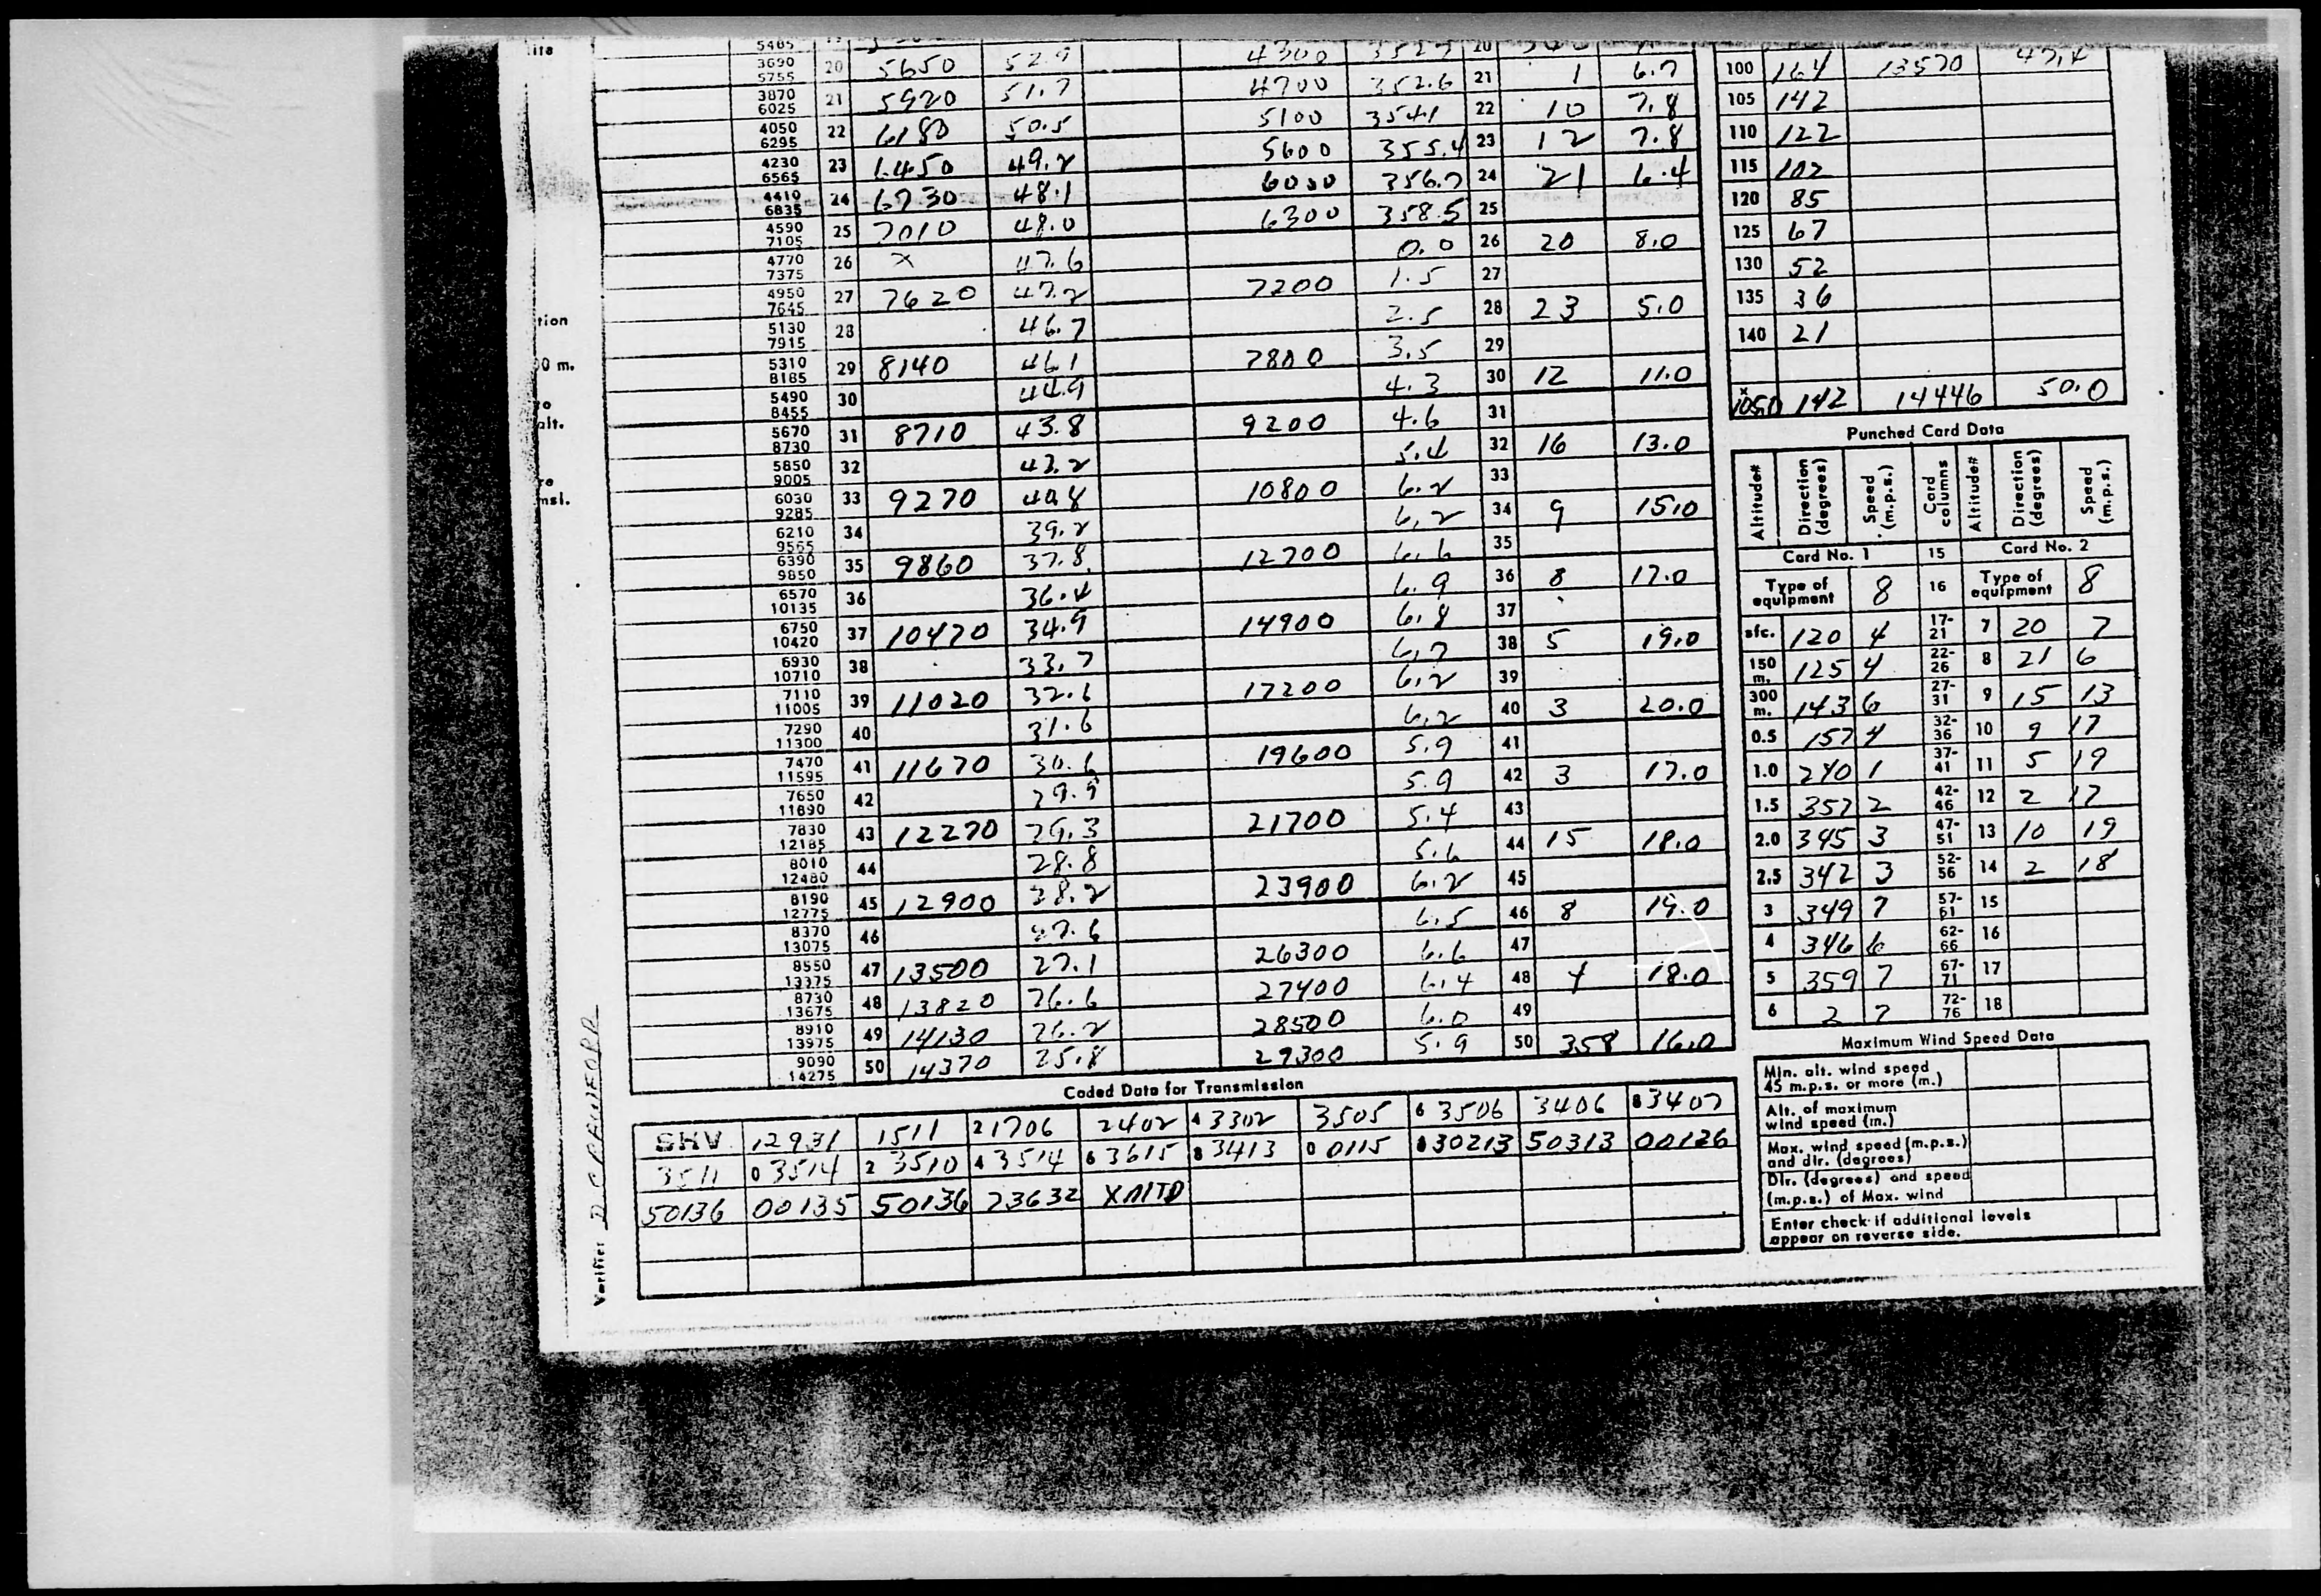 ita
5485 4300 20
3690 5755 20 5650 52.9 4700 352.6 21 1 6.7
3870 6025 21 5920 51.7 5100 354.1 22 10 7.8
4050 6295 22 6180 50.5 5600 355.4 23 12 7.8
4230 6565 23 6450 49.2 6000 356.7 24 21 6.4
4410 6835 24 6730 48.1 6300 358.5 25
4590 7105 25 7010 48.0 0.0 26 20 8.0
4770 7375 26 x 47.6 7200 1.5 27
4950 7645 27 7620 47.2 2.5 28 23 5.0
5130 7915 28 46.7 7800 3.5 29
5310 8185 29 8140 46.1 4.3 30 12 11.0
5490 8455 30 44.9 9200 4.6 31
5670 8730 31 8710 43.8 5.4 32 16 13.0
5850 9005 32 42.2 10800 6.2 33
6030 9285 33 9270 40.8 6.2 34 9 15.0
6210 9565 34 39.2 12700 6.6 35
6390 9850 35 9860 37.8 6.9 36 8 17.0
6570 10135 36 36.4 14900 6.8 37
6750 10420 37 10470 34.9 6.7 38 5 19.0
6930 10710 38 33.7 17200 6.2 39
7110 11005 39 11020 32.6 6.2 40 3 20.0
7290 11300 40 31.6 19600 5.9 41
7470 11595 41 11670 30.6 5.9 42 3 17.0
7650 11890 42 29.9 21700 5.4 43
7830 12185 43 12270 29.3 5.6 44 15 18.0
8010 12480 44 28.8 23900 6.2 45
8190 12775 45 12900 28.2 6.5 46 8 19.0
8370 13075 46 27.6 26300 6.6 47
8550 13375 47 13500 27.1 27400 6.4 48 4 18.0
8730 13675 48 13820 26.6 28500 6.0 49
8910 13975 49 14130 26.2 29300 5.9 50 358 16.0
9090 14275 50 14370 25.8
tion
0 m.
alt.
msl.
Verifier D C CRAWFORD
Coded Data for Transmission
SHV 12931 1511 21706 2402 4 3302 3505 6 3506 3406 8 3407
3511 0 3514 2 3510 4 3514 6 3615 8 3413 0 0115 30213 50313 00126
50136 00135 50136 23632 XMTD
100 164 13570 47.4
105 142
110 122
115 102
120 85
125 67
130 52
135 36
140 21
x 1050 142 14446 50.0
Punched Card Data
Altitude# Direction (degrees) Speed (m.p.s.) Card columns Altitude# Direction (degrees) Speed (m.p.s.)
Card No. 1 15 Card No. 2
Type of equipment 8 16 Type of equipment 8
sfc. 120 4 17-21 7 20 7
150 m. 125 4 22-26 8 21 6
300 m. 143 6 27-31 9 15 13
0.5 157 4 32-36 10 9 17
1.0 240 1 37-41 11 5 19
1.5 357 2 42-46 12 2 17
2.0 345 3 47-51 13 10 19
2.5 342 3 52-56 14 2 18
3 349 7 57-61 15
4 346 6 62-66 16
5 359 7 67-71 17
6 2 7 72-76 18
Maximum Wind Speed Data
Min. alt. wind speed 45 m.p.s. or more (m.)
Alt. of maximum wind speed (m.)
Max. wind speed (m.p.s.) and dir. (degrees)
Dir. (degrees) and speed (m.p.s.) of Max. wind
Enter check if additional levels appear on reverse side.